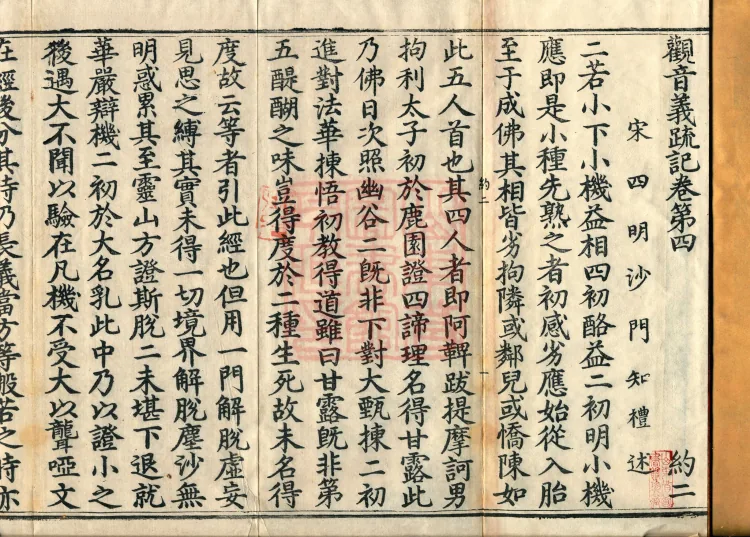 觀音義疏記卷第四 約二
宋四明沙門知禮述
二若小下小機益相四初酪益二初明小機
應即是小種先熟之者初感劣應始從入胎
至于成佛其相皆劣拘隣或鄰兒或憍陳如
約二 一
此五人首也其四人者即阿鞞跋提摩訶男
拘利太子初於鹿園證四諦理名得甘露此
乃佛日次照幽谷二既非下對大甄揀二初
進對法華揀悟初教得道雖曰甘露既非第
五醍醐之味豈得度於二種生死故未名得
度故云等者引此經也但用一門解脫虛妄
見思之縛其實未得一切境界解脫塵沙無
明惑累其至靈山方證斯脫二未堪下退就
華嚴辯機二初於大名乳此中乃以證小之
後遇大不聞以驗在凡機不受大以聾啞文
在經後分其時乃長義當方等般若之時亦